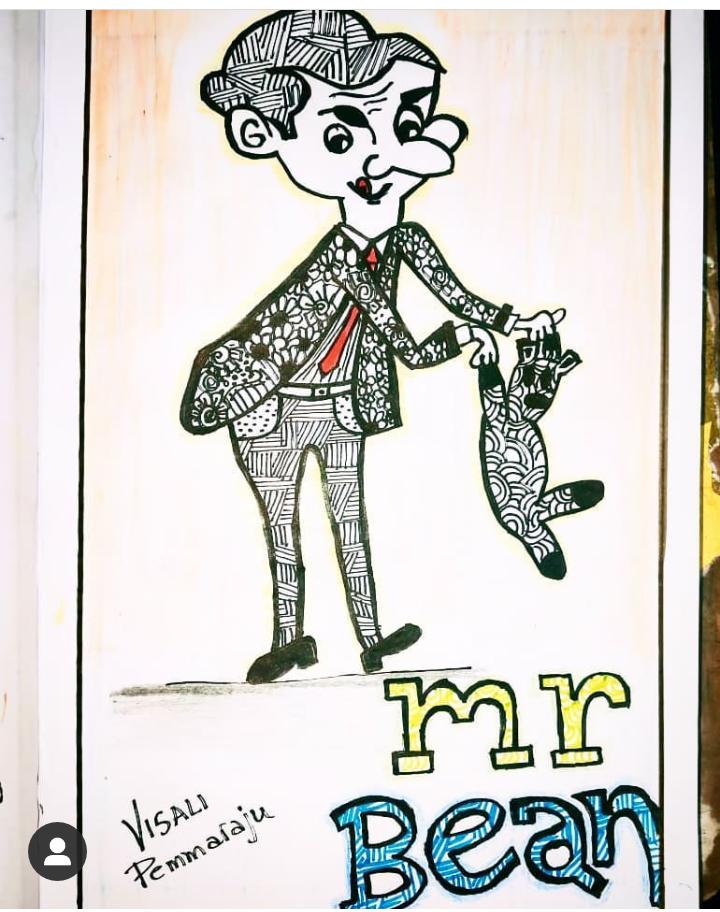 mr
Bean
VISALI
Pemmaraju